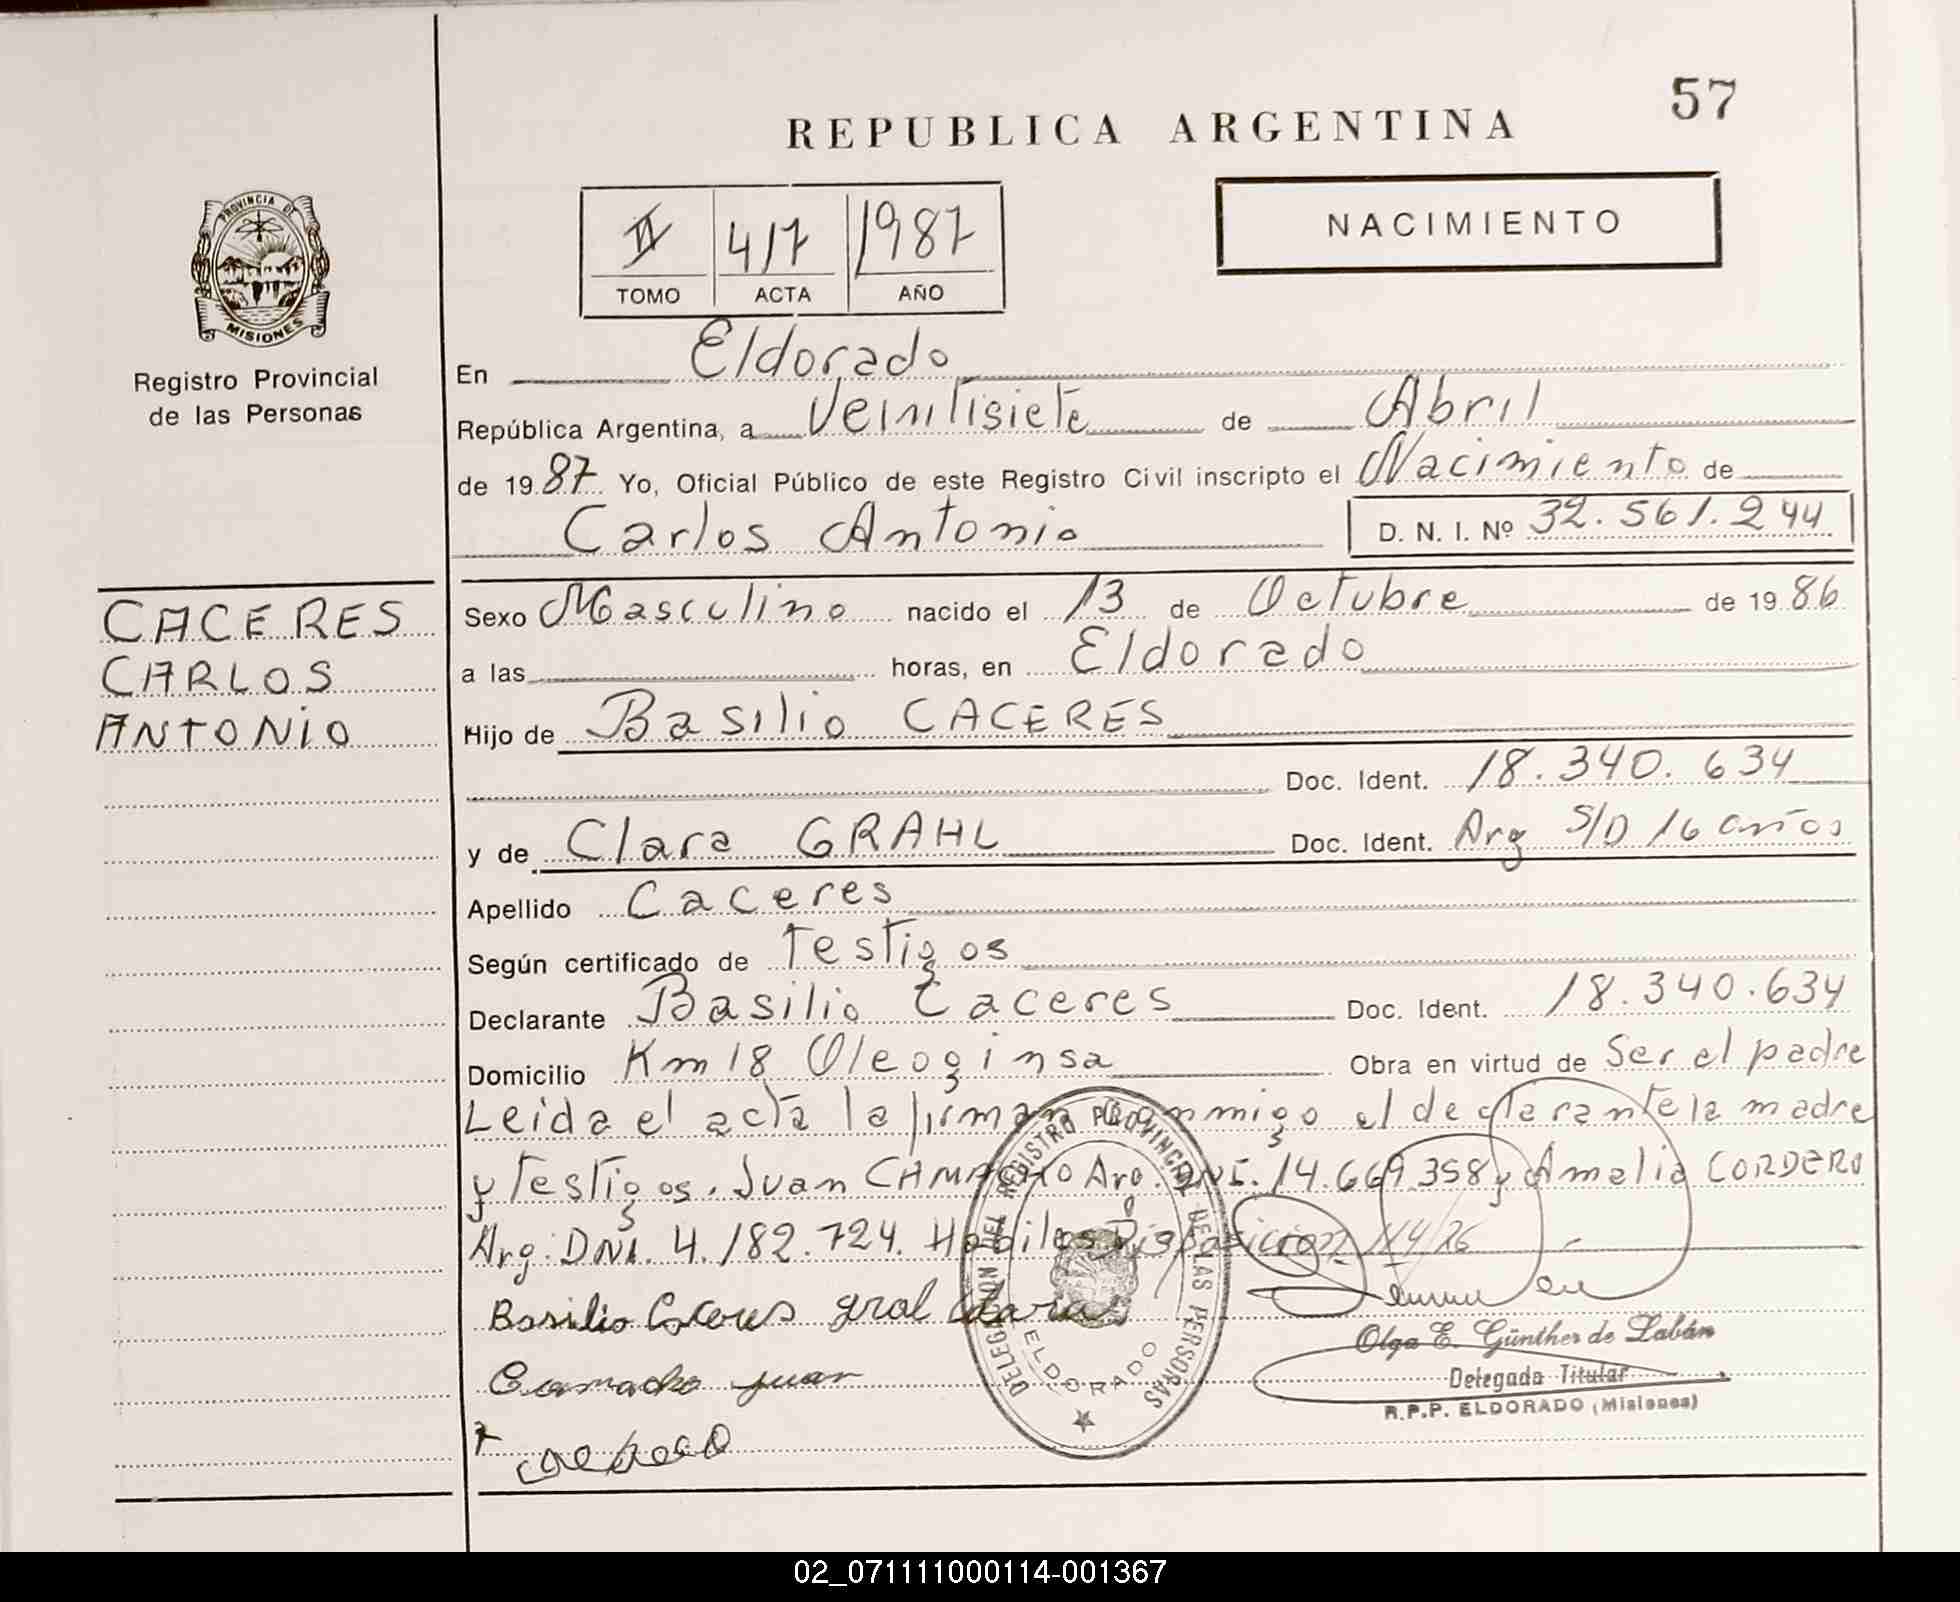 57
REPUBLICA ARGENTINA
NACIMIENTO
II 417 1987
TOMO ACTA AÑO
PROVINCIA DE
MISIONES
Registro Provincial
de las Personas
En Eldorado
República Argentina, a Veintisiete de Abril
de 1987 Yo, Oficial Público de este Registro Civil inscripto el Nacimiento de
Carlos Antonio D. N. I. Nº 32.561.244
CACERES
CARLOS
ANTONIO
Sexo Masculino nacido el 13 de Octubre de 1986
a las horas, en Eldorado
Hijo de Basilio CACERES
Doc. Ident. 18.340.634
y de Clara GRAHL Doc. Ident. Arg S/D 16 años
Apellido Caceres
Según certificado de Testigos
Declarante Basilio Caceres Doc. Ident. 18.340.634
Domicilio Km 18 Oleoginsa Obra en virtud de Ser el padre
Leida el acta la firman conmigo el declarante la madre
y Testigos. Juan CAMACHO Arg. DNI. 14.669.358 y Amalia CORDERO
Arg: DNI. 4.182.724. Habiles Disposicion
Basilio Caceres gral Clara
Camacho Juan
DELEGACIÓN DEL REGISTRO PROVINCIAL DE LAS PERSONAS
ELDORADO
Olga E. Günther de Labán
Delegada Titular
R.P.P. ELDORADO (Misiones)
02_071111000114-001367